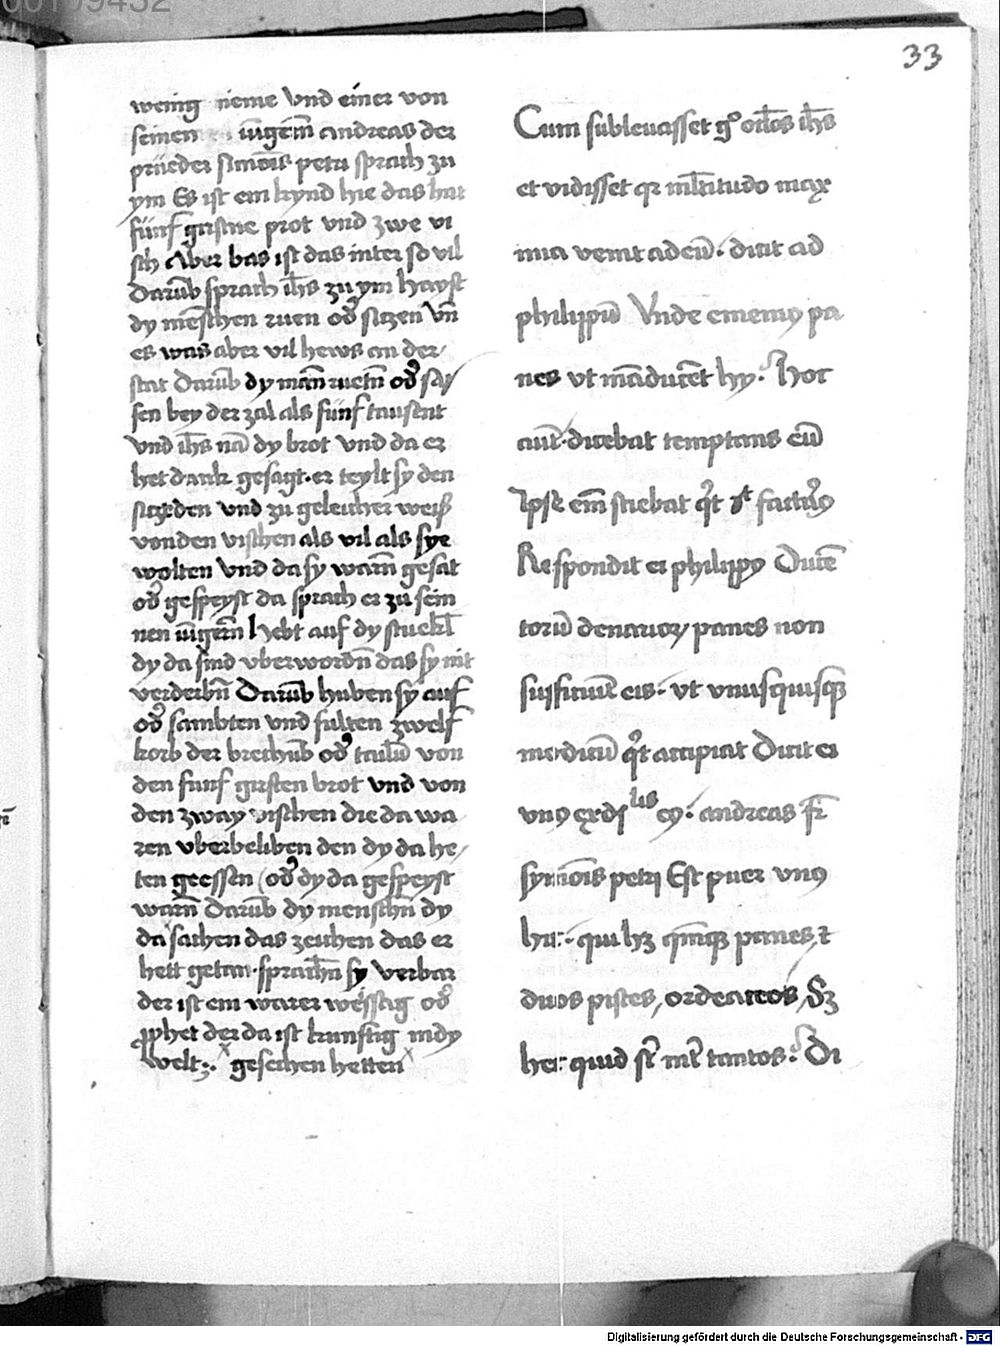 00109432
33
wenig neme vnd einer von
seinen iũgerñ andreas der
prüeder simōis petri sprach zu
ym Es ist ein kynd hie das hat
fünf girstne prot vnd zwe vi
sch Aber bas ist das inter so vil
Darūb sprach ih̄s zu ym hayst
dy mēschen ruen od̕ siczen Vn̄
es was aber vil hews an der
stat Darūb dy mān ruetn̄ od̕ sa
sen bey der zal als fünf tausent
vnd ih̄s nā dy brot vnd da er
het dank gesagt. er teylt sy den
siczeden vnd zu geleicher weiß
von den vischen als vil als sye
wolten Vnd da sy warn̄ gesat
od̕ gespeyst da sprach er zu sein
nen iũgern̄ hebt auf dy stuckl̄
dy da sind vberwordn̄ das sy nit
verderbn̄ Darūb huben sy auf
od̕ sambten vnd fulten zwelf
korb der brechūb od̕ tailū von
den funf girsten brot vnd von
den zway vischen die da wa
ren vberbeliben den dy da he
ten geessen od̕ dy da gespeyst
warn̄ Darūb dy menschn̄ dy
da sachen das zeichen das er
hett getan. sprachn̄ sy verbar
der ist ein warer weyssag od̕
ꝓphet der da ist kunftig in dy
welt:. gesechen hetten
Cum subleuasset gͦ oc̄los ih̄s
et vidisset qr ml̄titudo max
imia venit ad eū. dicit ad
philippū Vnde ememꝰ pa
nes vt māducēt hy. Hoc
aut̄. dicebat temptans eū
Ipse em̄ sciebat qͥt eͭ facturꝰ
Respondit ei philippꝰ Ducē
torū denarioꝝ panes non
sufficiūt eis. vt vnusquisqꝫ
modicū qͥt accipiat Dicit ei
vnꝰ ex disl̄is eꝰ. andreas fr̄
symōis petri Est puer vnꝰ
hic:. qui hꝫ qm̄qꝫ panes, ⁊
duos pisces, ordeaceos, Sꝫ
hec: quid st̄ int̄ tantos. Di
Digitalisierung gefördert durch die Deutsche Forschungsgemeinschaft - DFG